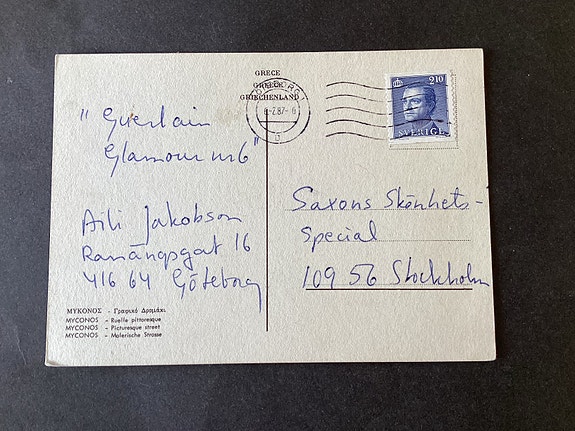 GRECE
GREECE
GRIECHENLAND
GÖTEBORG 1
6-7.87-0
210
SVERIGE
" Guerlain
Glamour nr 6 "
Aili Jakobson
Ranängsgat 16
416 64 Göteborg
Saxons Skönhets-
special
109 56 Stockholm
ΜΥΚΟΝΟΣ - Γραφικό Δρομάκι
MYCONOS - Ruelle pittoresque
MYCONOS - Picturesque street
MYCONOS - Malerische Strasse